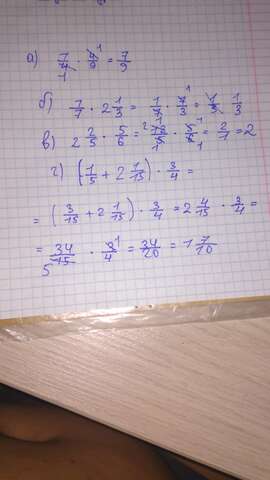 а) 7/4 · 4/9 = 7/9
1
б) 7/7 · 2 1/3 = 1/7 · 7/3 = 1/3 1/3
в) 2 2/5 · 5/6 = 12/5 · 5/6 = 2/1 = 2
г) (1/5 + 2 1/15) · 3/4 =
= (3/15 + 2 1/15) · 3/4 = 2 4/15 · 3/4 =
= 34/15 · 3/4 = 34/20 = 1 7/10
5